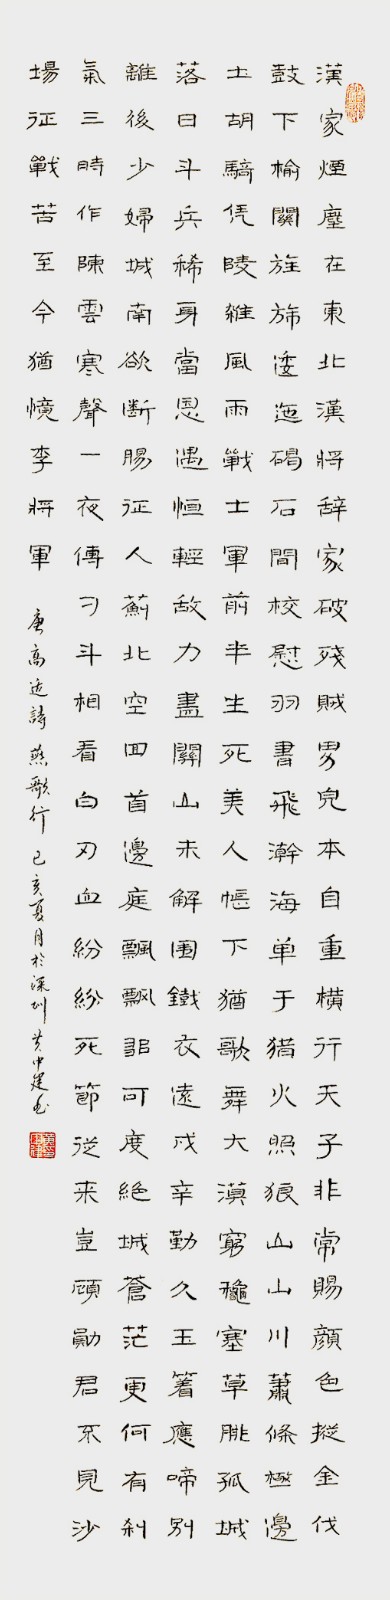 漢家煙塵在東北漢將辞家破殘賊男兒本自重橫行天子非常賜顔色摐金伐
鼓下榆關旌旆逶迤碣石間校尉羽書飛瀚海单于猎火照狼山山川蕭條極邊
土胡騎凭陵雜風雨戰士軍前半生死美人帳下猶歌舞大漠窮龝塞草腓孤城
落日斗兵稀身當恩遇恒輕敌力盡關山未解围鐵衣遠戍辛勤久玉箸應啼别
離後少婦城南欲断腸征人薊北空回首邊庭飄飄那可度絕域蒼茫更何有刹
氣三時作陳雲寒聲一夜傳刁斗相看白刃血紛紛死節從来豈顧勛君不見沙
場征戰苦至今猶憶李將軍
唐高适詩燕歌行己亥夏月於深圳黄中建书